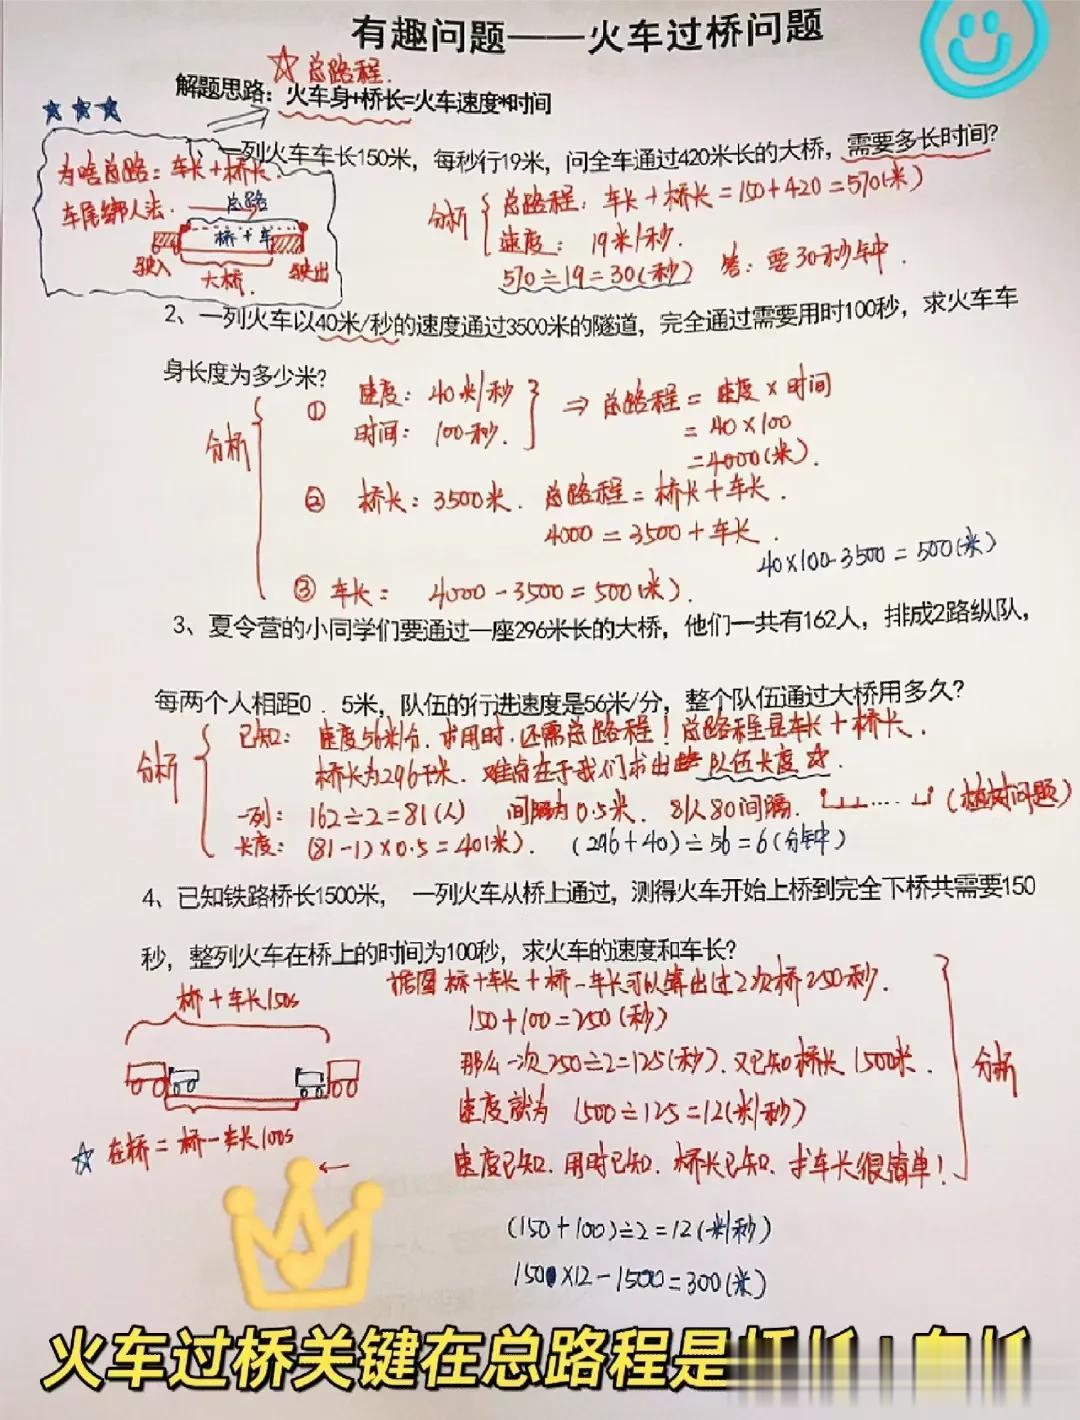 有趣问题——火车过桥问题
☆ 总路程.
解题思路：火车身+桥长=火车速度*时间
为啥总路：车长+桥长.
车尾绑人法.
总路
桥+车
驶入
大桥.
驶出
1、一列火车车长150米，每秒行19米，问全车通过420米长的大桥，需要多长时间？
分析
总路程：车长+桥长=150+420=570(米)
速度：19米/秒.
570÷19=30(秒) 答：要30秒钟.
2、一列火车以40米/秒的速度通过3500米的隧道，完全通过需要用时100秒，求火车车
身长度为多少米？
分析
① 速度：40米/秒
时间：100秒.
⇒ 总路程=速度×时间
=40×100
=4000(米).
② 桥长：3500米. 总路程=桥长+车长.
4000=3500+车长.
40×100-3500=500(米)
③ 车长：4000-3500=500(米).
3、夏令营的小同学们要通过一座296米长的大桥，他们一共有162人，排成2路纵队，
每两个人相距0．5米，队伍的行进速度是56米/分，整个队伍通过大桥用多久？
分析
已知：速度56米/分.求用时.还需总路程！总路程是车长+桥长.
桥长为296千米.难点在于我们求出队伍长度☆.
一列：162÷2=81(人) 间隔为0.5米. 81人80间隔. .... (植树问题)
长度：(81-1)×0.5=40(米). (296+40)÷56=6(分钟)
4、已知铁路桥长1500米， 一列火车从桥上通过，测得火车开始上桥到完全下桥共需要150
秒，整列火车在桥上的时间为100秒，求火车的速度和车长？
桥+车长150s
☆ 在桥=桥-车长100s
据图桥+车长+桥-车长可以算出过2次桥250秒.
150+100=250(秒)
那么一次250÷2=125(秒).又已知桥长1500米.
速度就为 1500÷125=12(米/秒)
速度已知.用时已知.桥长已知.求车长很简单！
分析
(150+100)÷2=12(米/秒)
150×12-1500=300(米)
火车过桥关键在总路程是